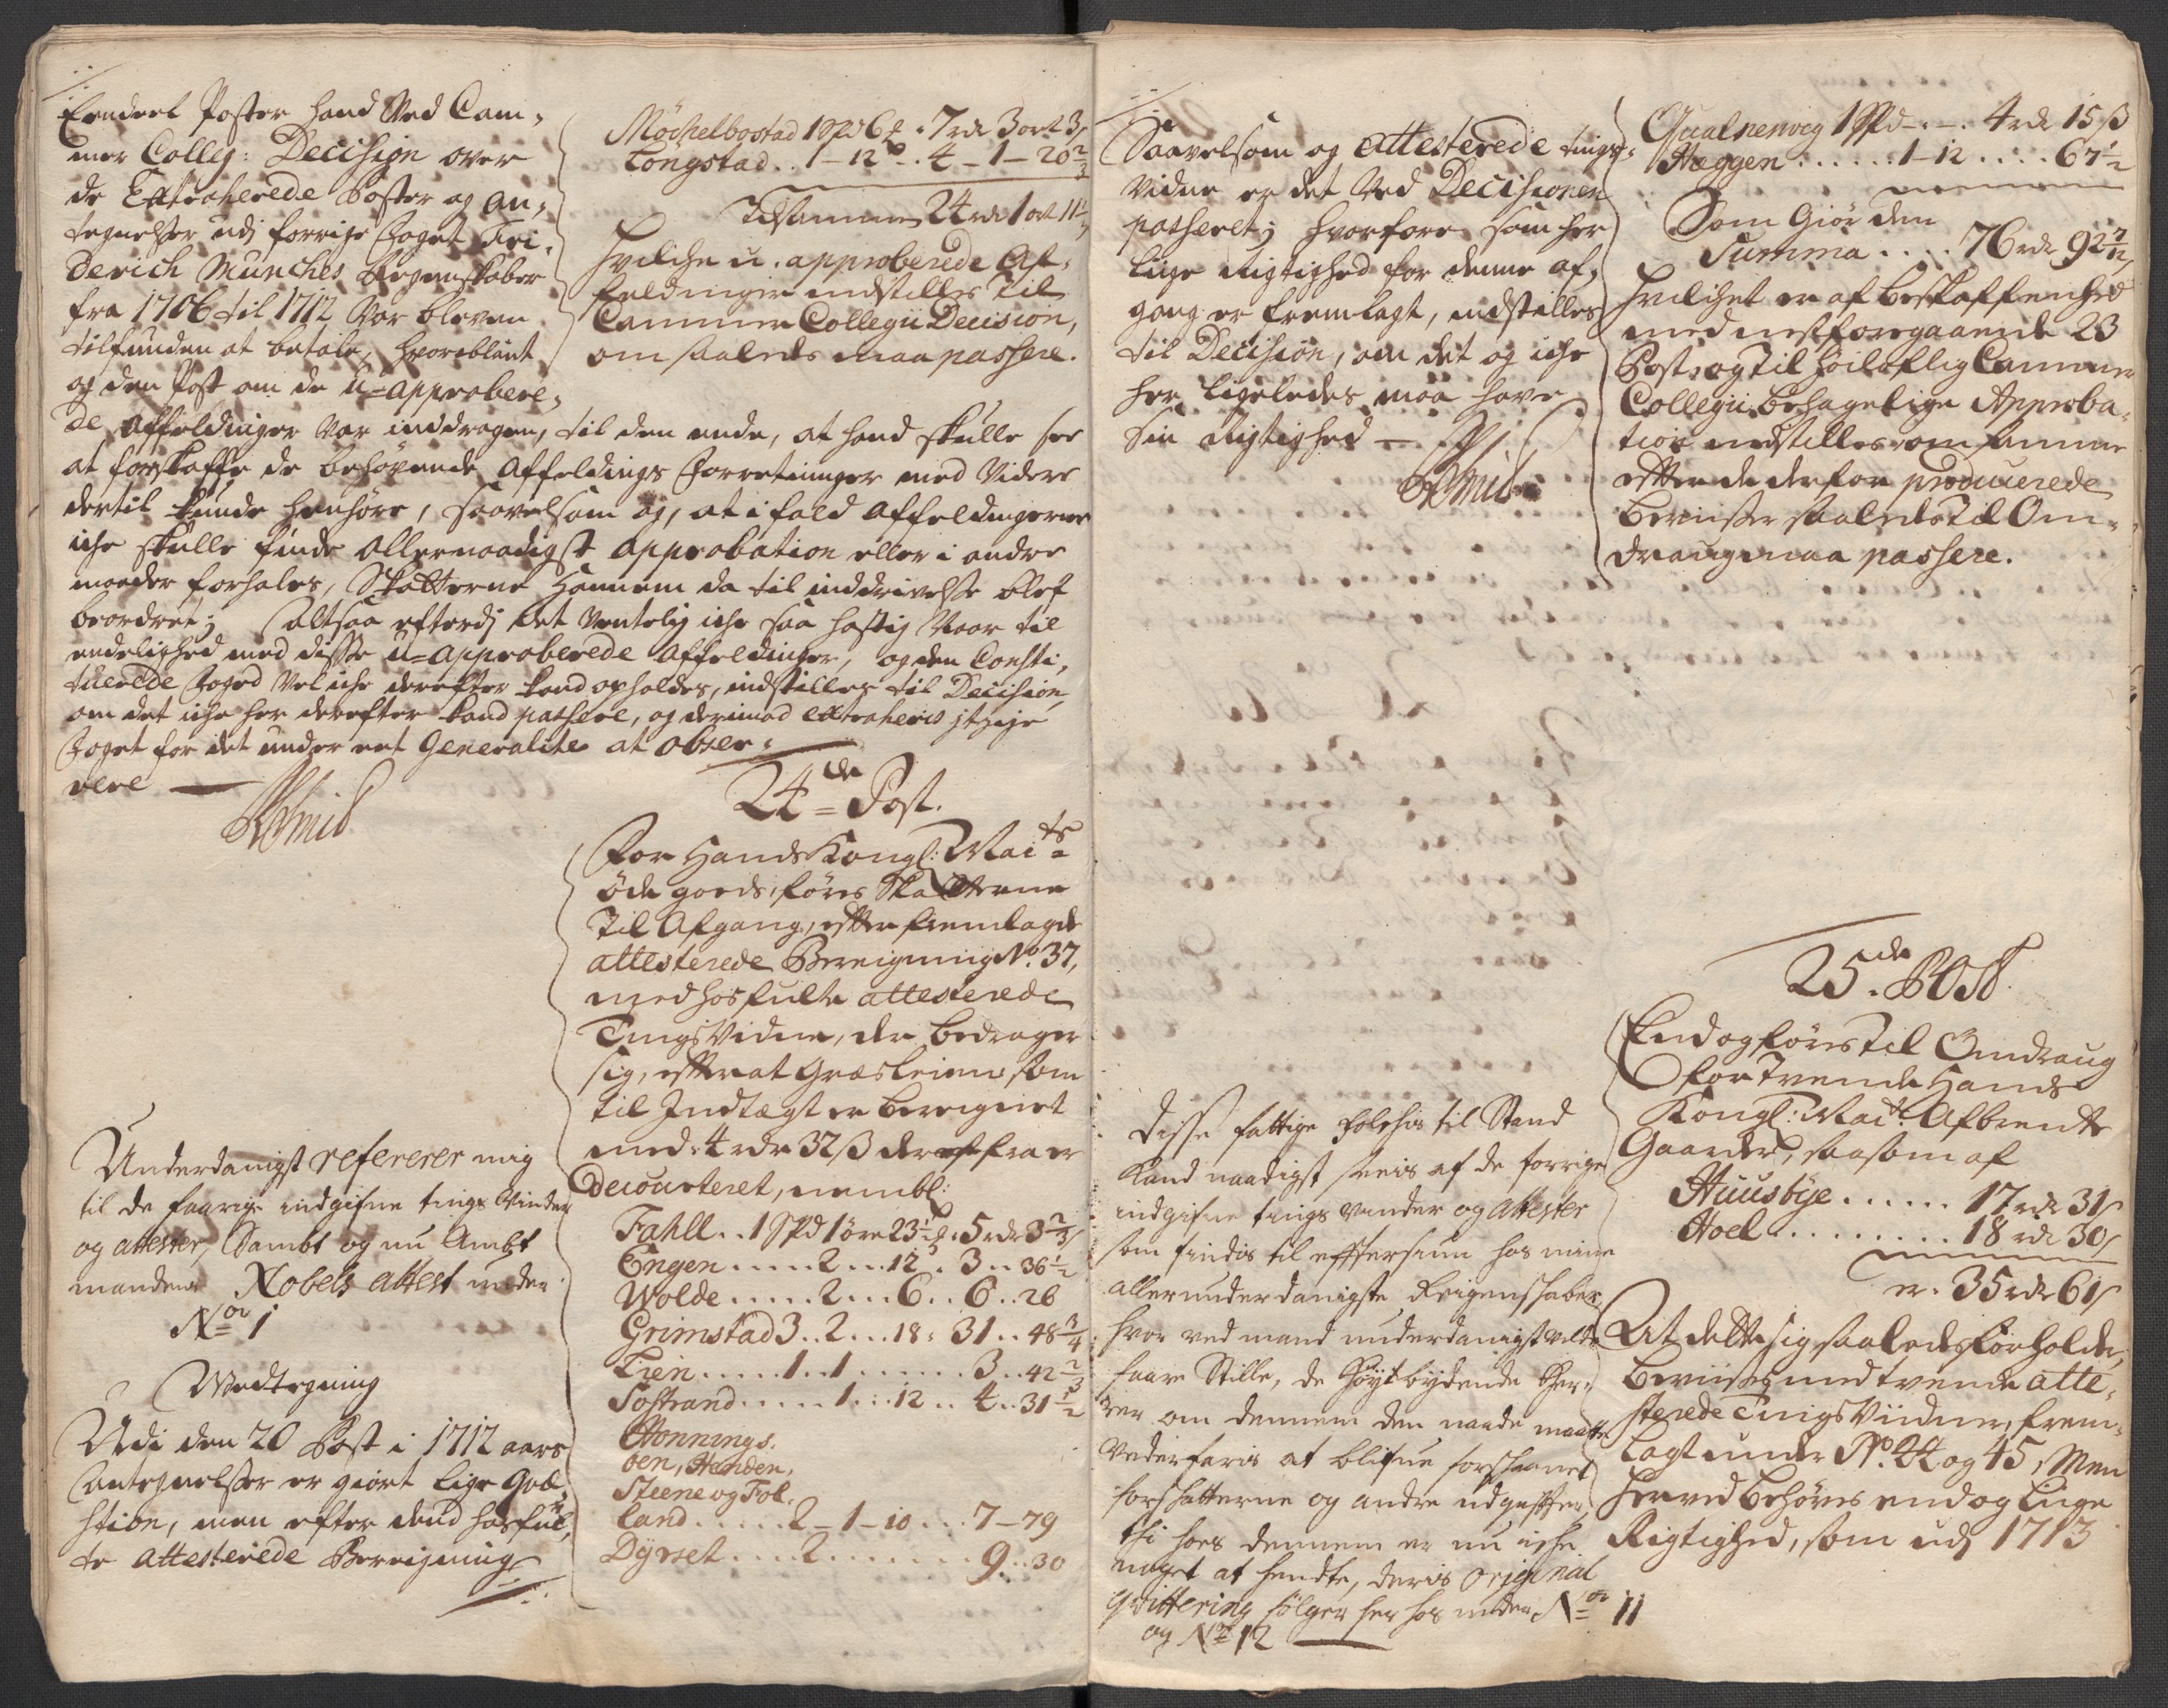 Eendeel Poster hand Ved Cam¬
mer Colleg: Decision over
de Extraherede Poster og An¬
tegnelser udj forrige Foget Fri¬
derich Munches Regenskaber
fra 1706 til 1712 Var bleven
tilfunden at betale, hvoriblant
og den Post om de u-approbere¬
de Affeldinger Var inddragen, til den ende, at hand skulle see
at forskaffe de behøvende Affeldings Forretninger med Videre
dertil kunde henhøre, saavelsom og, at i fald Affeldingerne
iche skulle finde Allernaadigst Approbation eller i andre
maader forhales, Skatterne hannem da til inddrivelse blef
beordret; altsaa efterdj det Ventelig iche saa hastig Naar til
endelighed med disse u-approberede Affeldinger, og den Consti¬
tuerede Foged Vel iche derefter kand opholdes, indstilles til Decision,
om det iche her derefter kand passere, og derimod extraheris
Foget for det under eet Generalite at obser¬
vere
Underdanigst refererer mig
til de faarige indgifne tings Vinder
og attester, Sambt og nu Ambt
mandens Nobels attest under
No 1
Vedtegning
Udi den 20 Post i 1712 aars
Antegnelser er giort lige Qvæ¬
stion, men efter dend hosful¬
te attesterede Bereigning
Møchelbostad 1 Spd 6 . 7 rdr 3 ort 3
Longstad .. 1 - 12 .. 4 - 1 - 20 2/3
Tilsammen 24 rdr 1 ort 11
hvilche u. approberede Af¬
feldinger indstilles til
Cammer Collegii Decision,
om saaleds maa passere.
24de Post.
For Hands Kongl: Maits
øde goeds, føres Skatterne
til Afgang, efter fremlagde
attesterede Bereigning No. 37,
med hosfulte attesterede
Tings Vidne, der bedrager
sig, efter at Græsleien som
til Indtægt er bereignet
med 4 rdr 32 ß der fra er
decourteret, nembl:
Fahll .. 1 Spd 1 øre 23 1/2 . 5 rdr 3 2/3
Engen ..... 2 ... 12 . 3 .. 36 1/2
Wolde ..... 2 ... 6 .. 6 .. 26
Grimstad 3 .. 2 ... 18 : 31 .. 48 3/4
Lien ..... 1 .. 1 ...... 3 .. 42 2/3
Sostrand ..... 1 ... 12 .. 4 .. 31 1/2
Honnings¬
øen, Henden,
Steene og Fol¬
land ..... 2 - 1 - 10 ... 7 - 79
Dyrset .... 2 ....... 9 .. 30
Saavelsom og attesterede tings
Vidne er det Ved Decisionen
passeret; hvorfore som her
liige rigtighed for denne af¬
gang er fremlagt, indstilles
til Decision, om det og iche
her ligeledes maa have
sin rigtighed
Disse fattige folchis til Stand
kand naadigst sees af de forrige
indgifne tings Vinder og attester
som findis til efftersiun hos mine
allerunderdanigste Reigenskaber,
hvor ved mand underdanigst vilde
faare Stille, de Høytbydende Her¬
rer om dennem den naade maatte
Vederfaris at blifve forschaanet
for schatterne og andre udgifter,
thi hoes dennem er nu iche
noget at hendte, deris original
qvittering følger her hos under No 11
og No 12
Qualnenvig 1 Spd - . - . 4 rdr 15 ß
Heggen ...... 1 - 12 .... 67 1/2
Som Giør den
Summa .... 76 rdr 92 7/12
Hvilchet er af beskaffenhed
med nestforegaaende 23
Post, og til Høiloflig Cammer
Collegii behagelige Approba¬
tion indstilles om samme
efter de derfor producerede
Beviiser saaleds til Om¬
draug maa passere.
25de Post
End og føres til Omdraug
for tvende Hands
Kongl: Mait. Afbrendte
Gaarder, saasom af
Huusbye ...... 17 rdr 31
Hoel ......... 18 rdr 30
er. 35 rdr 61
At dette sig saaleds forholder,
beviises med tvende atte¬
sterede Tings Viidner, frem¬
lagt under No. 44 og 45, Men
herved behøves end og liige
Rigtighed, som udj 1713